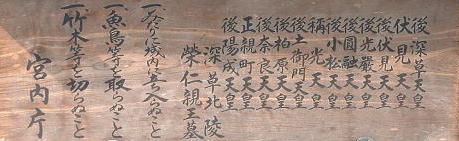 後深草天皇
伏見天皇
後伏見天皇
後光嚴天皇
後圓融天皇
後小松天皇
稱光天皇
後土御門天皇
後柏原天皇
後奈良天皇
正親町天皇
後陽成天皇
深草北陵
榮仁親王墓
一、みだりに域内に立ち入らぬこと
一、魚鳥等を取らぬこと
一、竹木等を切らぬこと
宮内庁